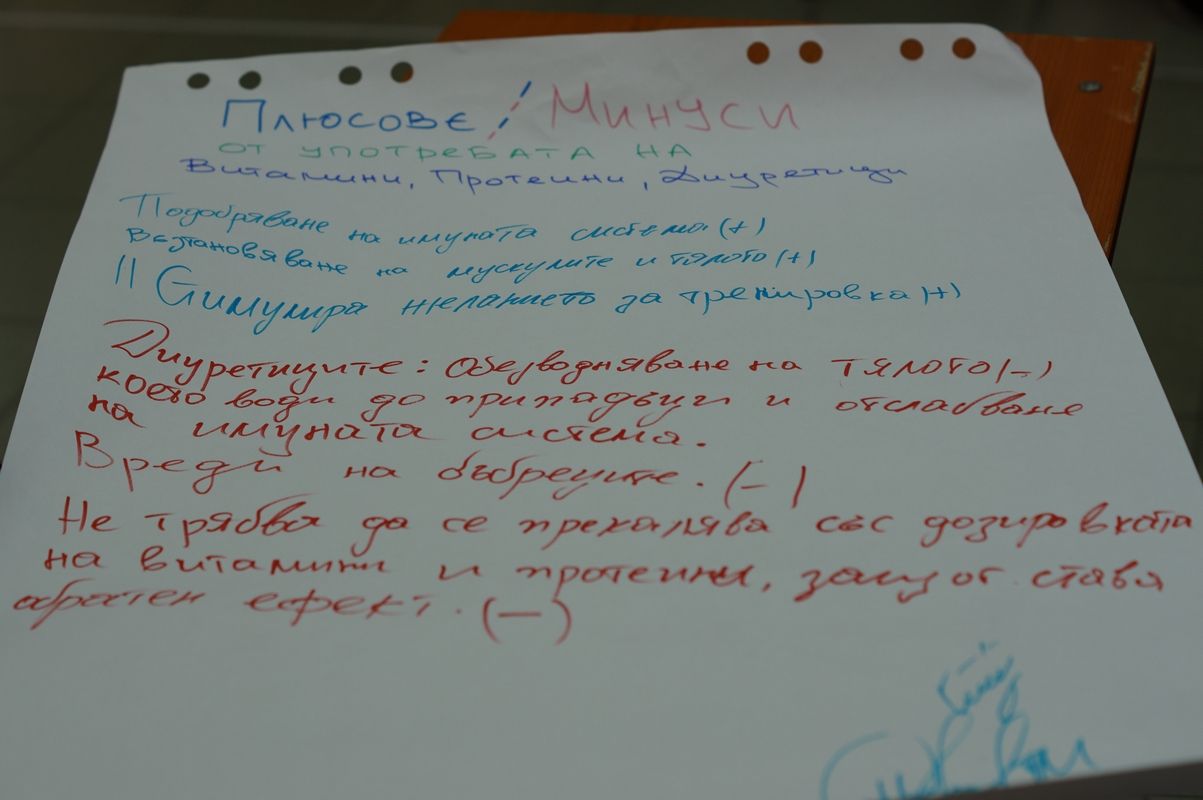 Плюсове / Минуси
от употребата на
Витамини, Протеини, Диуретици
Подобряване на имуната система (+)
Встановяване на мускулите и тялото (+)
|| Симулира желанието за тренировка (+)
Диуретиците: Обезводняване на тялото (-)
което води до припадъци и отслабване
на имуната система.
Вреди на бъбреците. (-)
Не трябва да се прекалява със дозировката
на витамини и протеини, защот става
обратен ефект. (-)